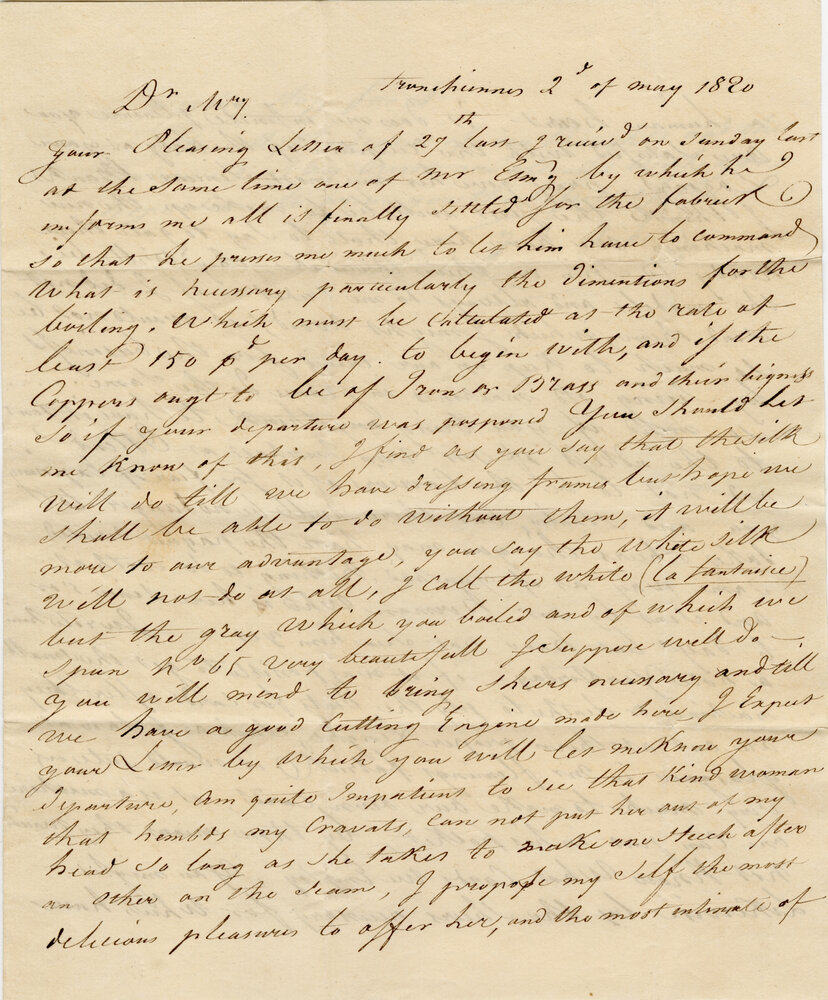 Tronchiennes 2d of may 1820
Dr Mry.
your Pleasing Letter of 27th last I reciv'd on Sunday last
at the same time one of Mr by which he
informs me all is finally settled for the fabrick
so that he presses me much to let him have to command
What is necessary particularly the dimentions for the
boiling. Which must be Calculated at the rate of
least 150 pd per day. to begin with, and if the
Coppers ought to be of Iron or Brass and their bigness
so if your departure was posponed You should let
me Know of this, I find as you say that the silk
will do till we have dressing frames but hope we
shall be able to do without them, it will be
more to our advantage, you say the White silk
Will not do at all, I call the white (la fantaisie)
but the gray Which you boiled and of which we
span No 65 very beautifull I suppose will do –
you will mind to bring sheers necessary and till
we have a good Cutting Engine made here I Expect
your Letter by Which you will let me Know your
departure, am quite Impatient to see that Kind woman
that hembds my Cravats, Can not put her out of my
head so long as she takes to make one steech after
an other on the seam, I propose my self the most
delicious pleasures to offer her, and the most intimate of